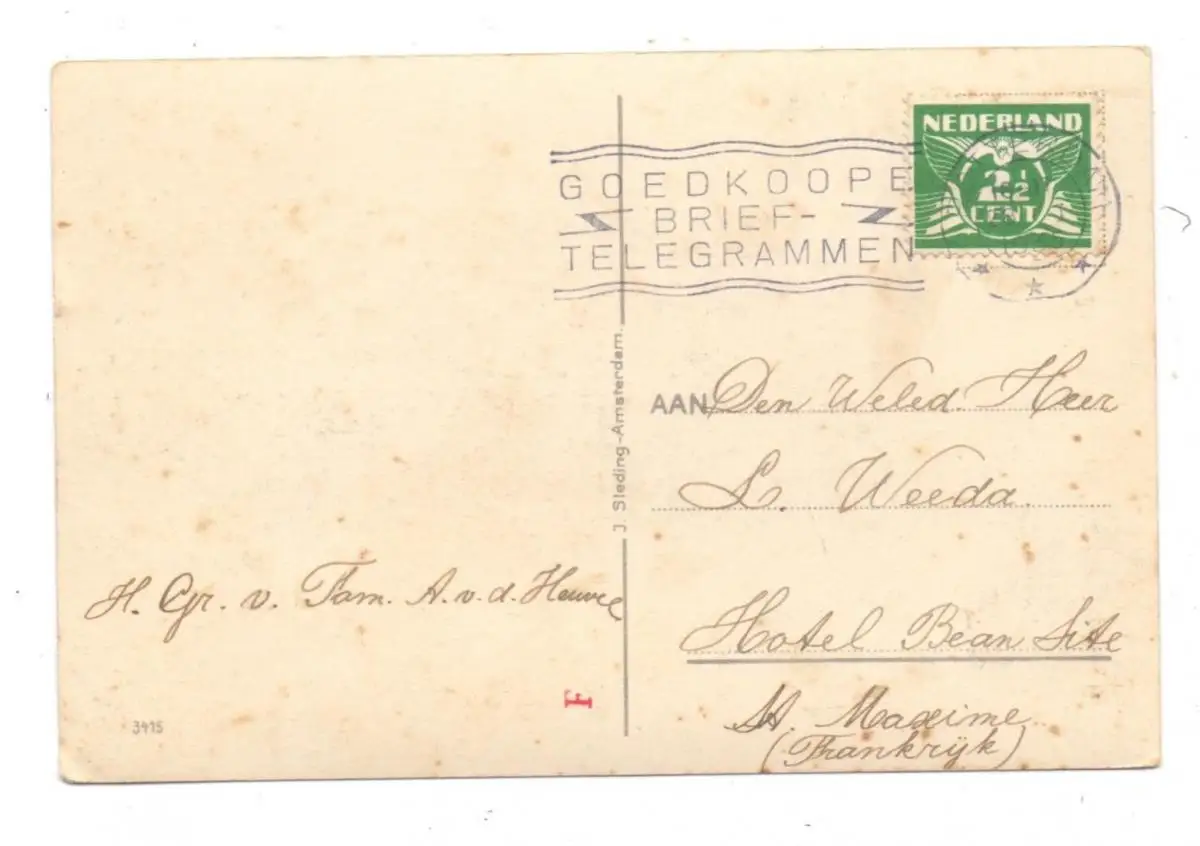 NEDERLAND
2½
CENT
GOEDKOOPE
BRIEF-
TELEGRAMMEN
J. Sleding-Amsterdam.
AAN Den Weled. Heer
L. Weeda.
Hotel Beau Site
St. Maxime
(Frankrijk)
H. Gr. v. Fam. A. v. d. Heuvel
F
3415